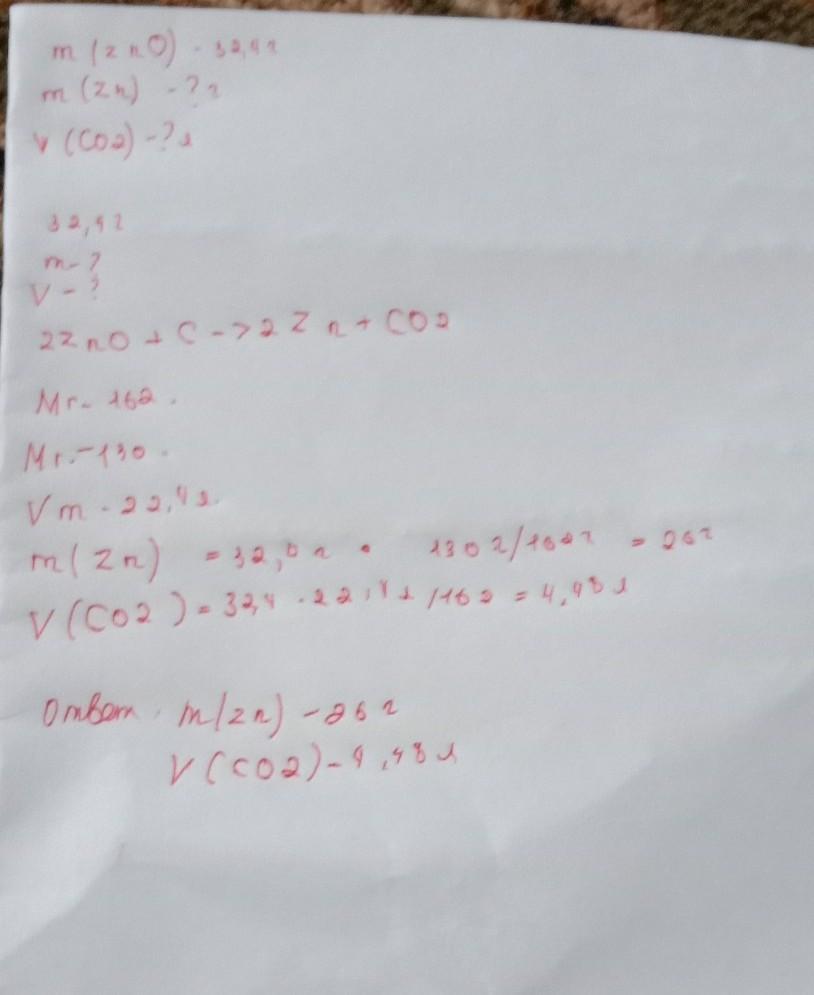 m (ZnO) - 32,4 г
m (Zn) - ? г
V (CO2) - ? л
32,4 г
m - ?
V - ?
2ZnO + C -> 2Zn + CO2
Mr - 162.
Mr. - 130.
Vm - 22,4 л.
m(Zn) = 32,4 г • 130 г/162 г = 26 г
V(CO2) = 32,4 . 22,4 л /162 = 4,48 л
Ответ. m(Zn) - 26 г
V(CO2) - 4,48 л